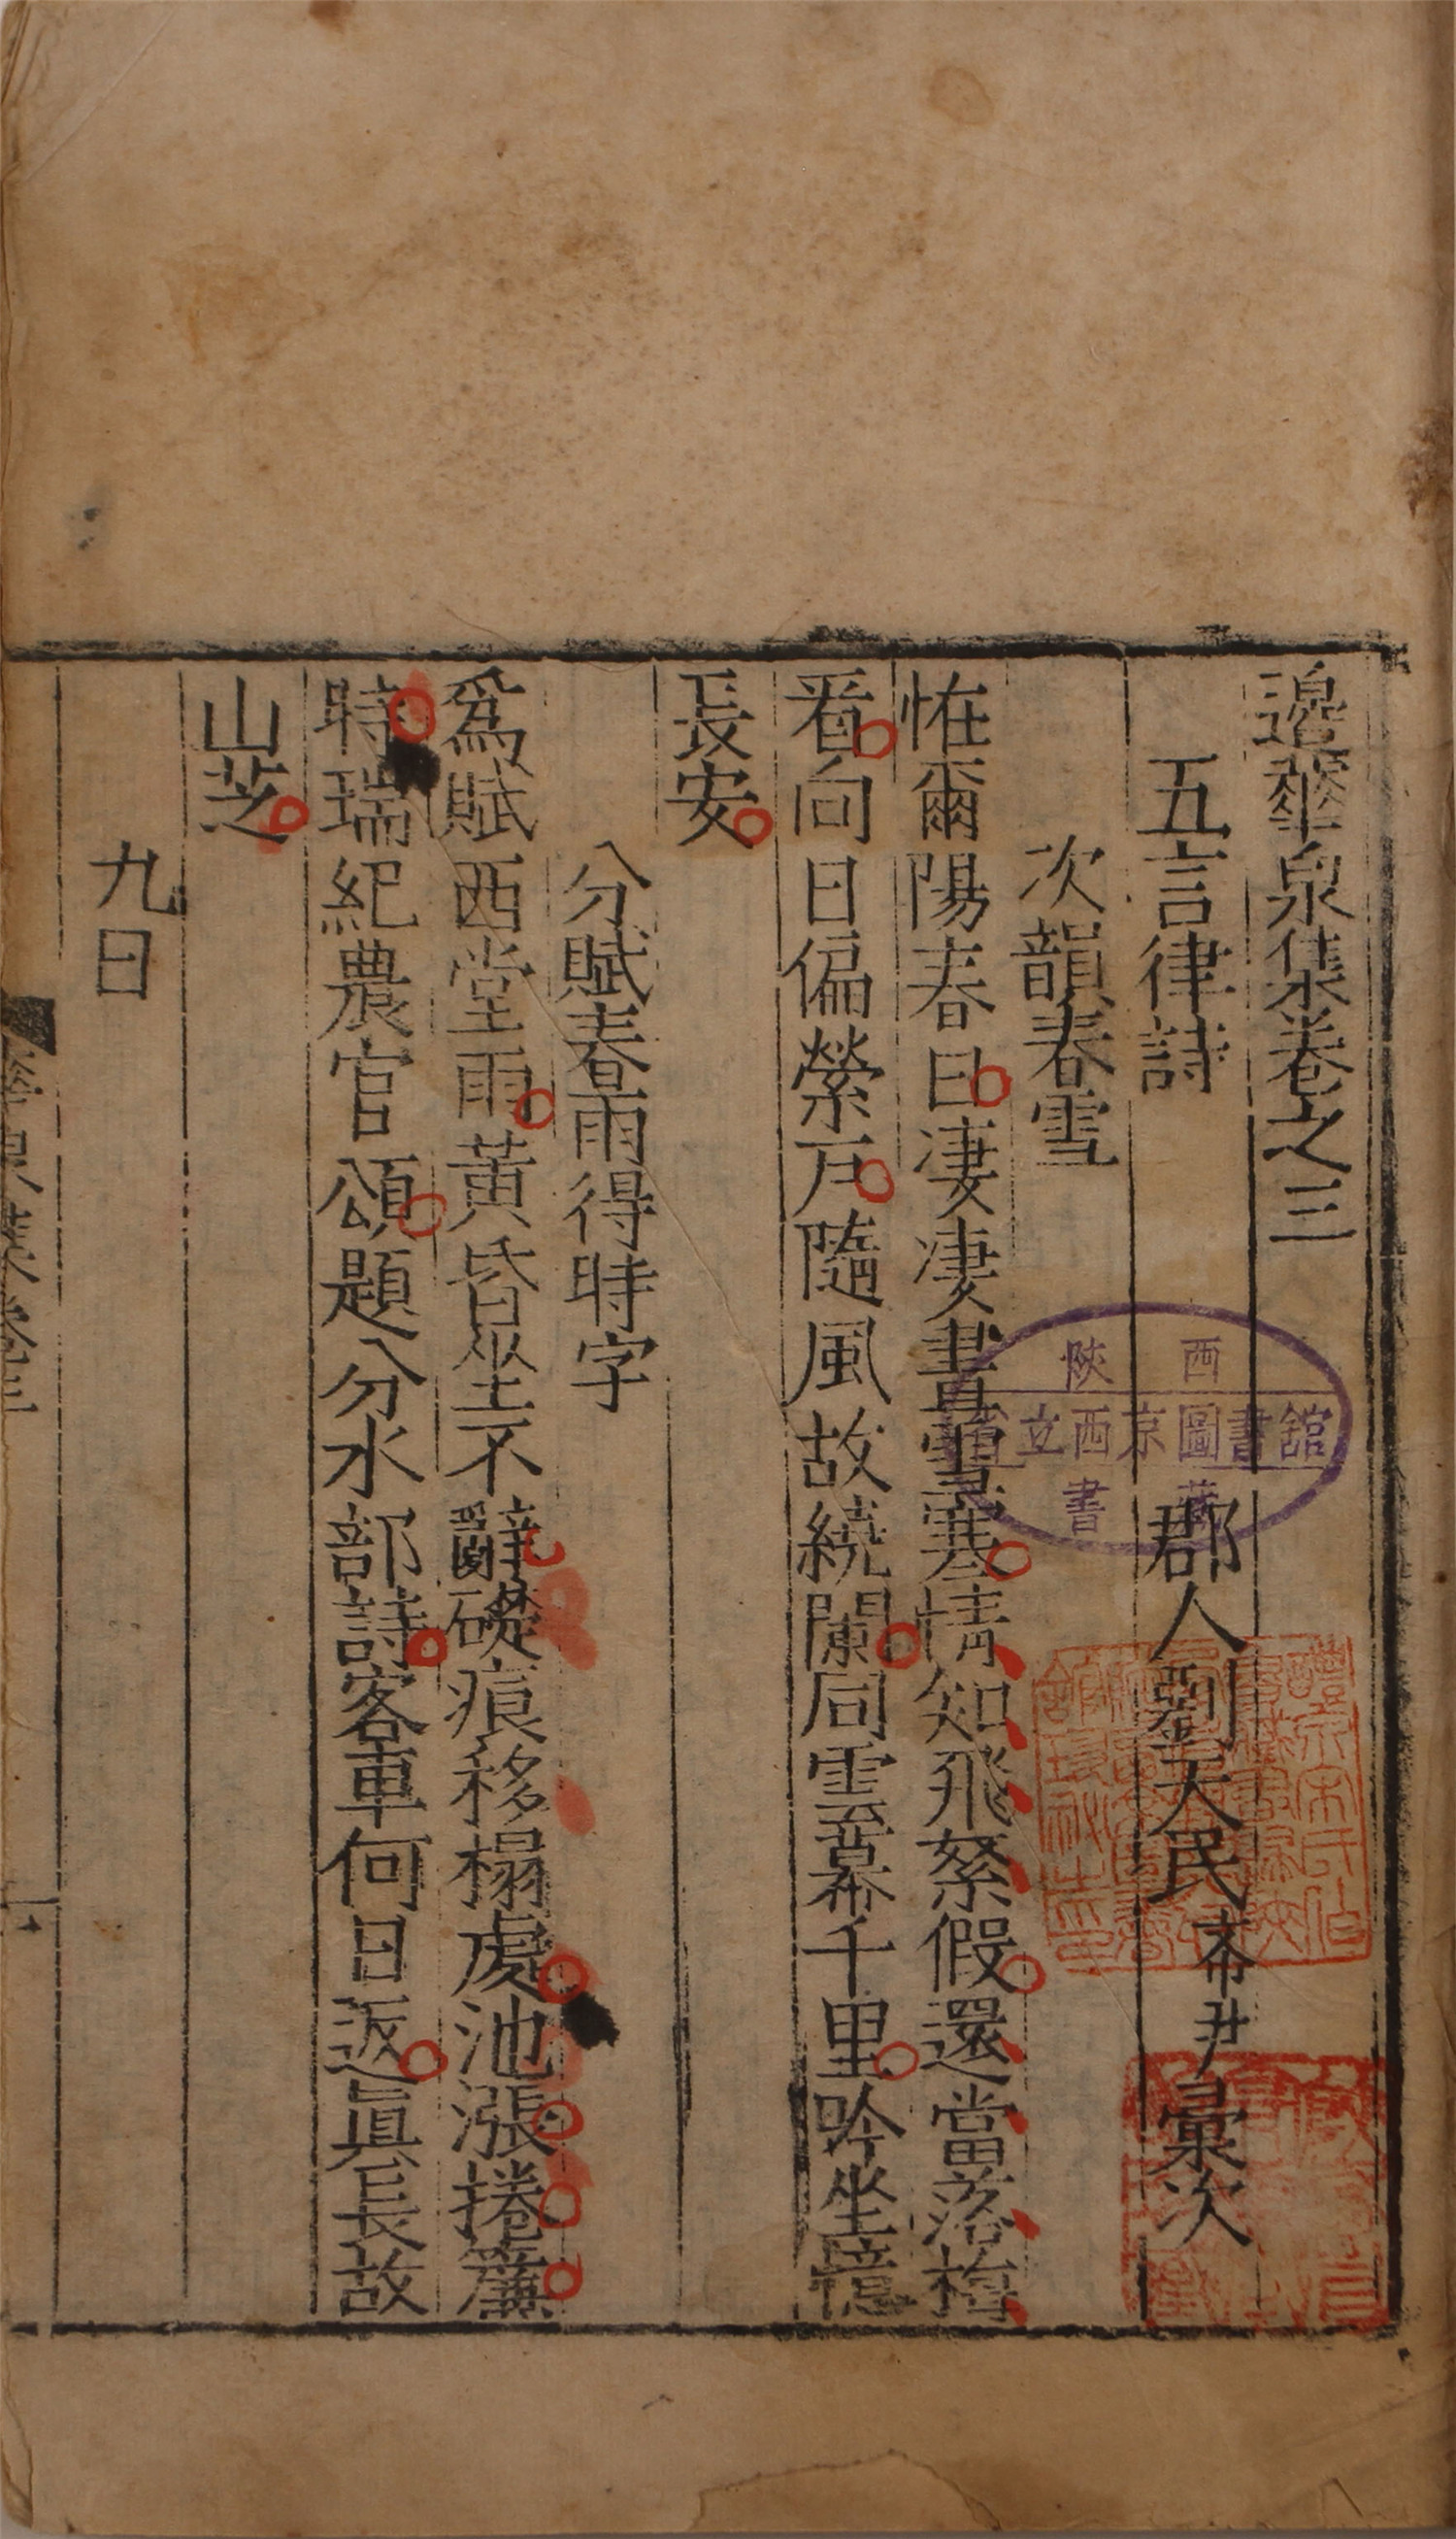 邊華泉集卷之三
五言律詩
郡人劉天民希尹彙次
次韻春雪
恠爾陽春日凄凄晝雪寒情知飛絮假還當落梅
看向日偏縈戶隨風故繞闌同雲幕千里吟坐憶
長安
分賦春雨得時字
爲賦西堂雨黃昏坐不辭礎痕移榻處池漲捲簾
時瑞紀農官頌題分水部詩客車何日返眞長故
山芝
九日
陝西
省立西京圖書館
藏書